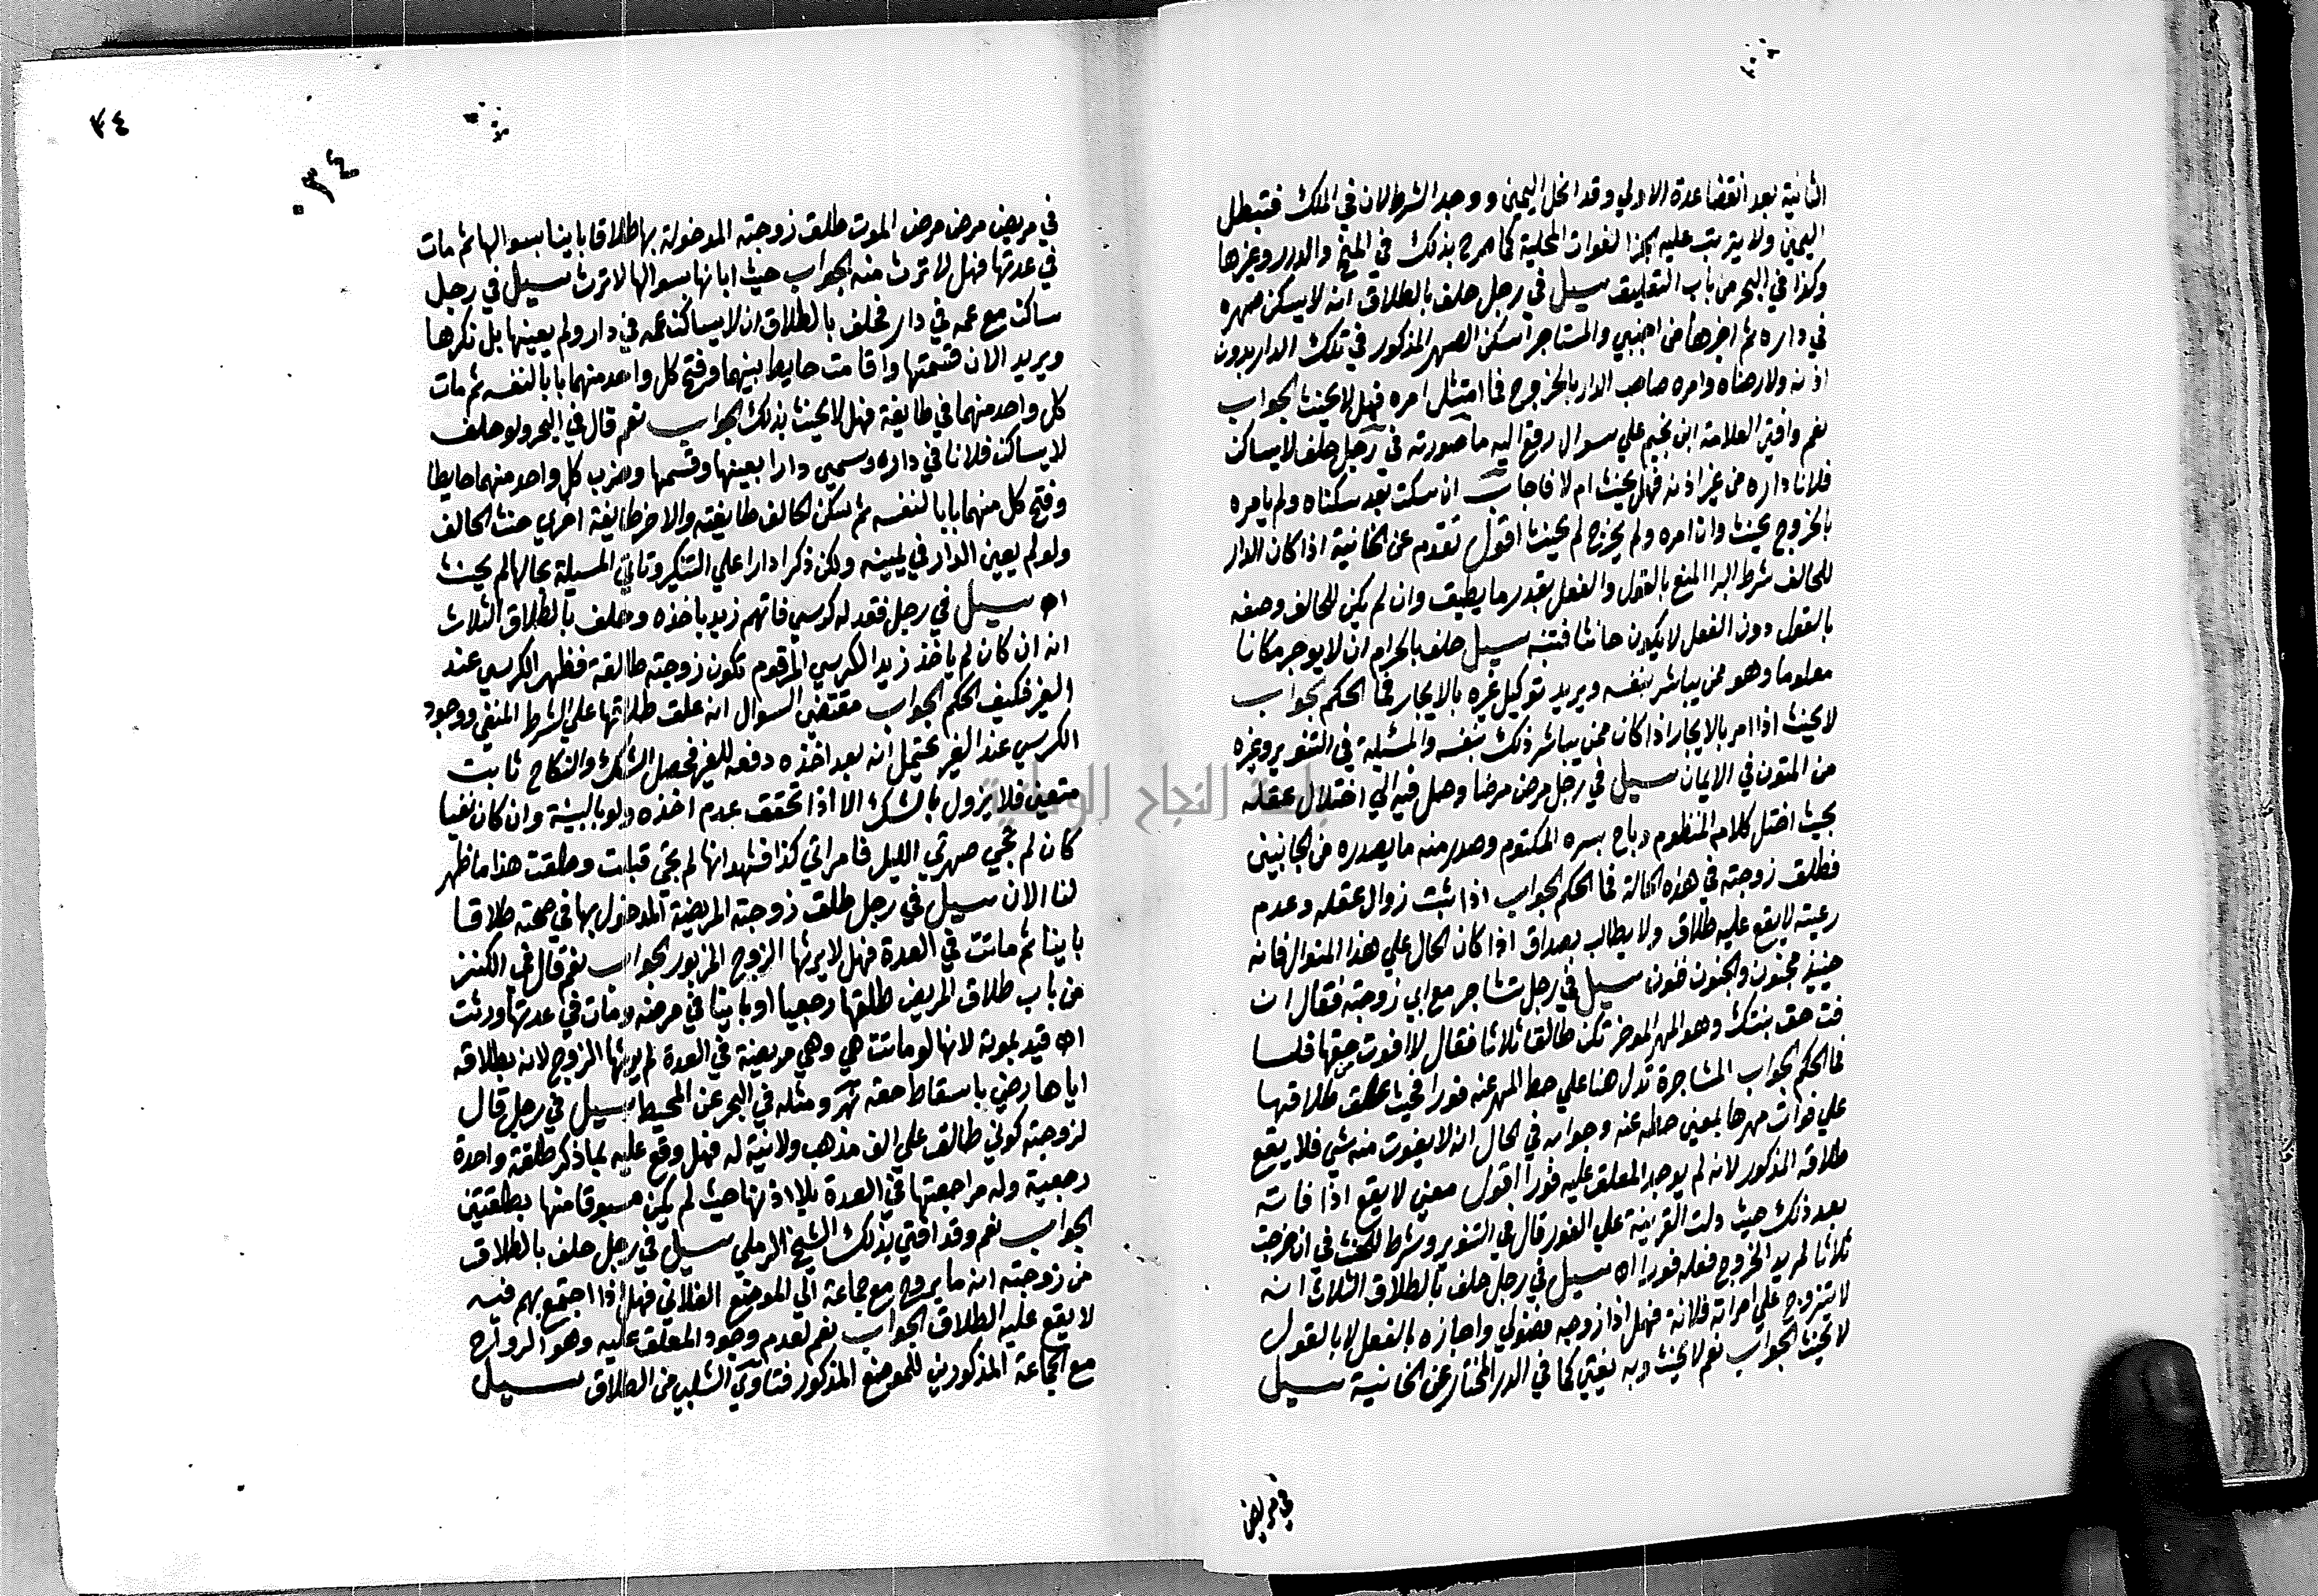 الثانية بعد انقضا عدة الاولي وقد انحل اليمين ووجد الشرط لان في الملك فتبطل
اليمين ولا يترتب عليه الجزا لفوات المحلية كما صرح بذلك في المنح والدرر وغيرها
وكذا في البحر من باب التعليق سيل في رجل حلف بالطلاق انه لا يسكن صهره
في داره ثم اجرها من اجنبي والمستاجر اسكن الصهر المذكور في تلك الدار بدون
اذنه ولا رضاه وامره صاحب الدار بالخروج فما امتثل امره فهل لا يحنث الجواب
نعم وافتي العلامة ابن نجيم علي سوال رفع اليه ما صورته في رجل حلف لا يساكن
فلانا داره من غير اذنه فهل يحنث ام لا فاجاب ان سكت بعد سكناه ولم يامره
بالخروج يحنث وان امره ولم يخرج لم يحنث اقول تقدم عن الخانية اذا كان الدار
للحالف شرط البر المنع بالقول والفعل بقدر ما يطيق وان لم يكن للحالف وصفه
بالقول دون الفعل لا يكون حانثا فتنبه سيل حلف بالحرام ان لا يوجر مكانا
معلوما وهو ممن يباشر بنفسه ويريد توكيل غيره بالايجار فما الحكم الجواب
لا يحنث اذا امر بالايجار اذا كان ممن يباشر ذلك بنفسه والمسيلة في التنوير وغيره
من المتون في الايمان سيل في رجل مرض مرضا وصل فيه الي اختلال عقله
بحيث اختل كلامه المنظوم وباح بسره المكتوم وصدر منه ما يصدره من المجانين
فطلق زوجته في هذه الحالة فما الحكم الجواب اذا ثبت زوال عقله وعدم
رعيته لا يقع عليه طلاق ولا يطالب بصداق اذا كان الحال علي هذا المنوال فانه
حينيذ مجنون والجنون فنون سيل في رجل تشاجر مع ابي زوجته فقال ان
فت حق بنتك وهو المهر الموخر تكن طالقا ثلاثا فقال لا افوت حقها فلسا
فما الحكم الجواب المشاجرة تدل هنا علي حط المهر عنه فورا فحيث علق طلاقها
علي فوات مهرها بمعني حطه عنه وجوابه في الحال انه لا يفوت منه شي فلا يقع
طلاقه المذكور لانه لم يوجد المعلق عليه فورا اقول معني لا يقع اذا فاته
بعد ذلك حيث دلت القرينة علي الفور قال في التنوير وشرط للحنث في ان خرجت
ثلاثا لمريد الخروج فعله فورا اه سيل في رجل حلف بالطلاق الثلاث انه
لا يتزوج علي امراته فلانة فهل اذا زوجه فضولي واجازه بالفعل لا بالقول
لا يحنث الجواب نعم لا يحنث وبه يفتي كما في الدر المختار عن الخانية سيل
في مريض
٣٤
٣٤
في مريض مرض مرض الموت طلق زوجته المدخولة بها طلاقا باينا بسوالها ثم مات
في عدتها فهل لا ترث منه الجواب حيث ابانها بسوالها لا ترث سيل في رجل
ساكن مع عمه في دار فحلف بالطلاق ان لا يساكن عمه في دار ولم يعينها بل نكرها
ويريد الان قسمتها واقامت حايط بينهما وفتح كل واحد منهما بابا لنفسه ثم مات
كل واحد منهما في طايفة فهل لا يحنث بذلك الجواب نعم قال في البحر ولو حلف
لا يساكن فلانا في داره وسمي دارا بعينها وقسمها وضرب كل واحد منهما حايطا
وفتح كل منهما بابا لنفسه ثم سكن الحالف طايفته والاخر طايفة اخري حنث الحالف
ولو لم يعين الدار في يمينه ولكن ذكر دارا علي التنكير وباقي المسيلة بحالها لم يحنث
اه سيل في رجل فقد له كرسي فاتهم زيد باخذه وحلف بالطلاق الثلاث
انه ان كان لم ياخذ زيد الكرسي المرقوم تكون زوجته طالقة فظهر الكرسي عند
الغير فكيف الحكم الجواب مقتضي السوال انه علق طلاقها علي الشرط المنفي ووجود
الكرسي عند الغير يحتمل انه بعد اخذه دفعه للغير فحصل الشك والنكاح ثابت
متعين فلا يزول بالشك الا اذا تحقق عدم اخذه ولو بالبينة وان كان نفيا
كان لم تجي صهرتي الليل فامراتي كذا فشهدا انها لم تجي قبلت وطلقت هذا ما ظهر
لنا الان سيل في رجل طلق زوجته المريضة المدخول بها في صحته طلاقا
باينا ثم ماتت في العدة فهل لا يرثها الزوج المزبور الجواب نعم قال في الكنز
من باب طلاق المريض طلقها رجعيا او باينا في مرضه ومات في عدتها ورثت
اه قيد بموته لانها لو ماتت هي وهي مريضة في العدة لم يرثها الزوج لانه بطلاقه
اياها رضي باسقاط حقه نهر ومثله في البحر عن المحيط سيل في رجل قال
لزوجته كوني طالق علي الف مذهب ولا نية له فهل وقع عليه بما ذكر طلقة واحدة
رجعية وله مراجعتها في العدة بلا اذنها حيث لم يكن مسبوقا منها بطلقتين
الجواب نعم وقد افتي بذلك الشيخ الرملي سيل في رجل حلف بالطلاق
من زوجته انه ما يروح مع جماعة الي الموضع الفلاني فهل اذا اجتمع بهم فيه
لا يقع عليه الطلاق الجواب نعم لعدم وجود المعلق عليه وهو الرواح
مع الجماعة المذكورين للموضع المذكور فتاوي الشلبي من الطلاق سيل
جامعة النجاح الوطنية